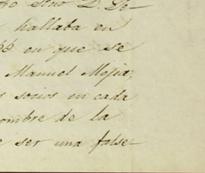 hallaba en
en que se
Manuel Mejia,
socios en cada
ombre de la
ser una false-